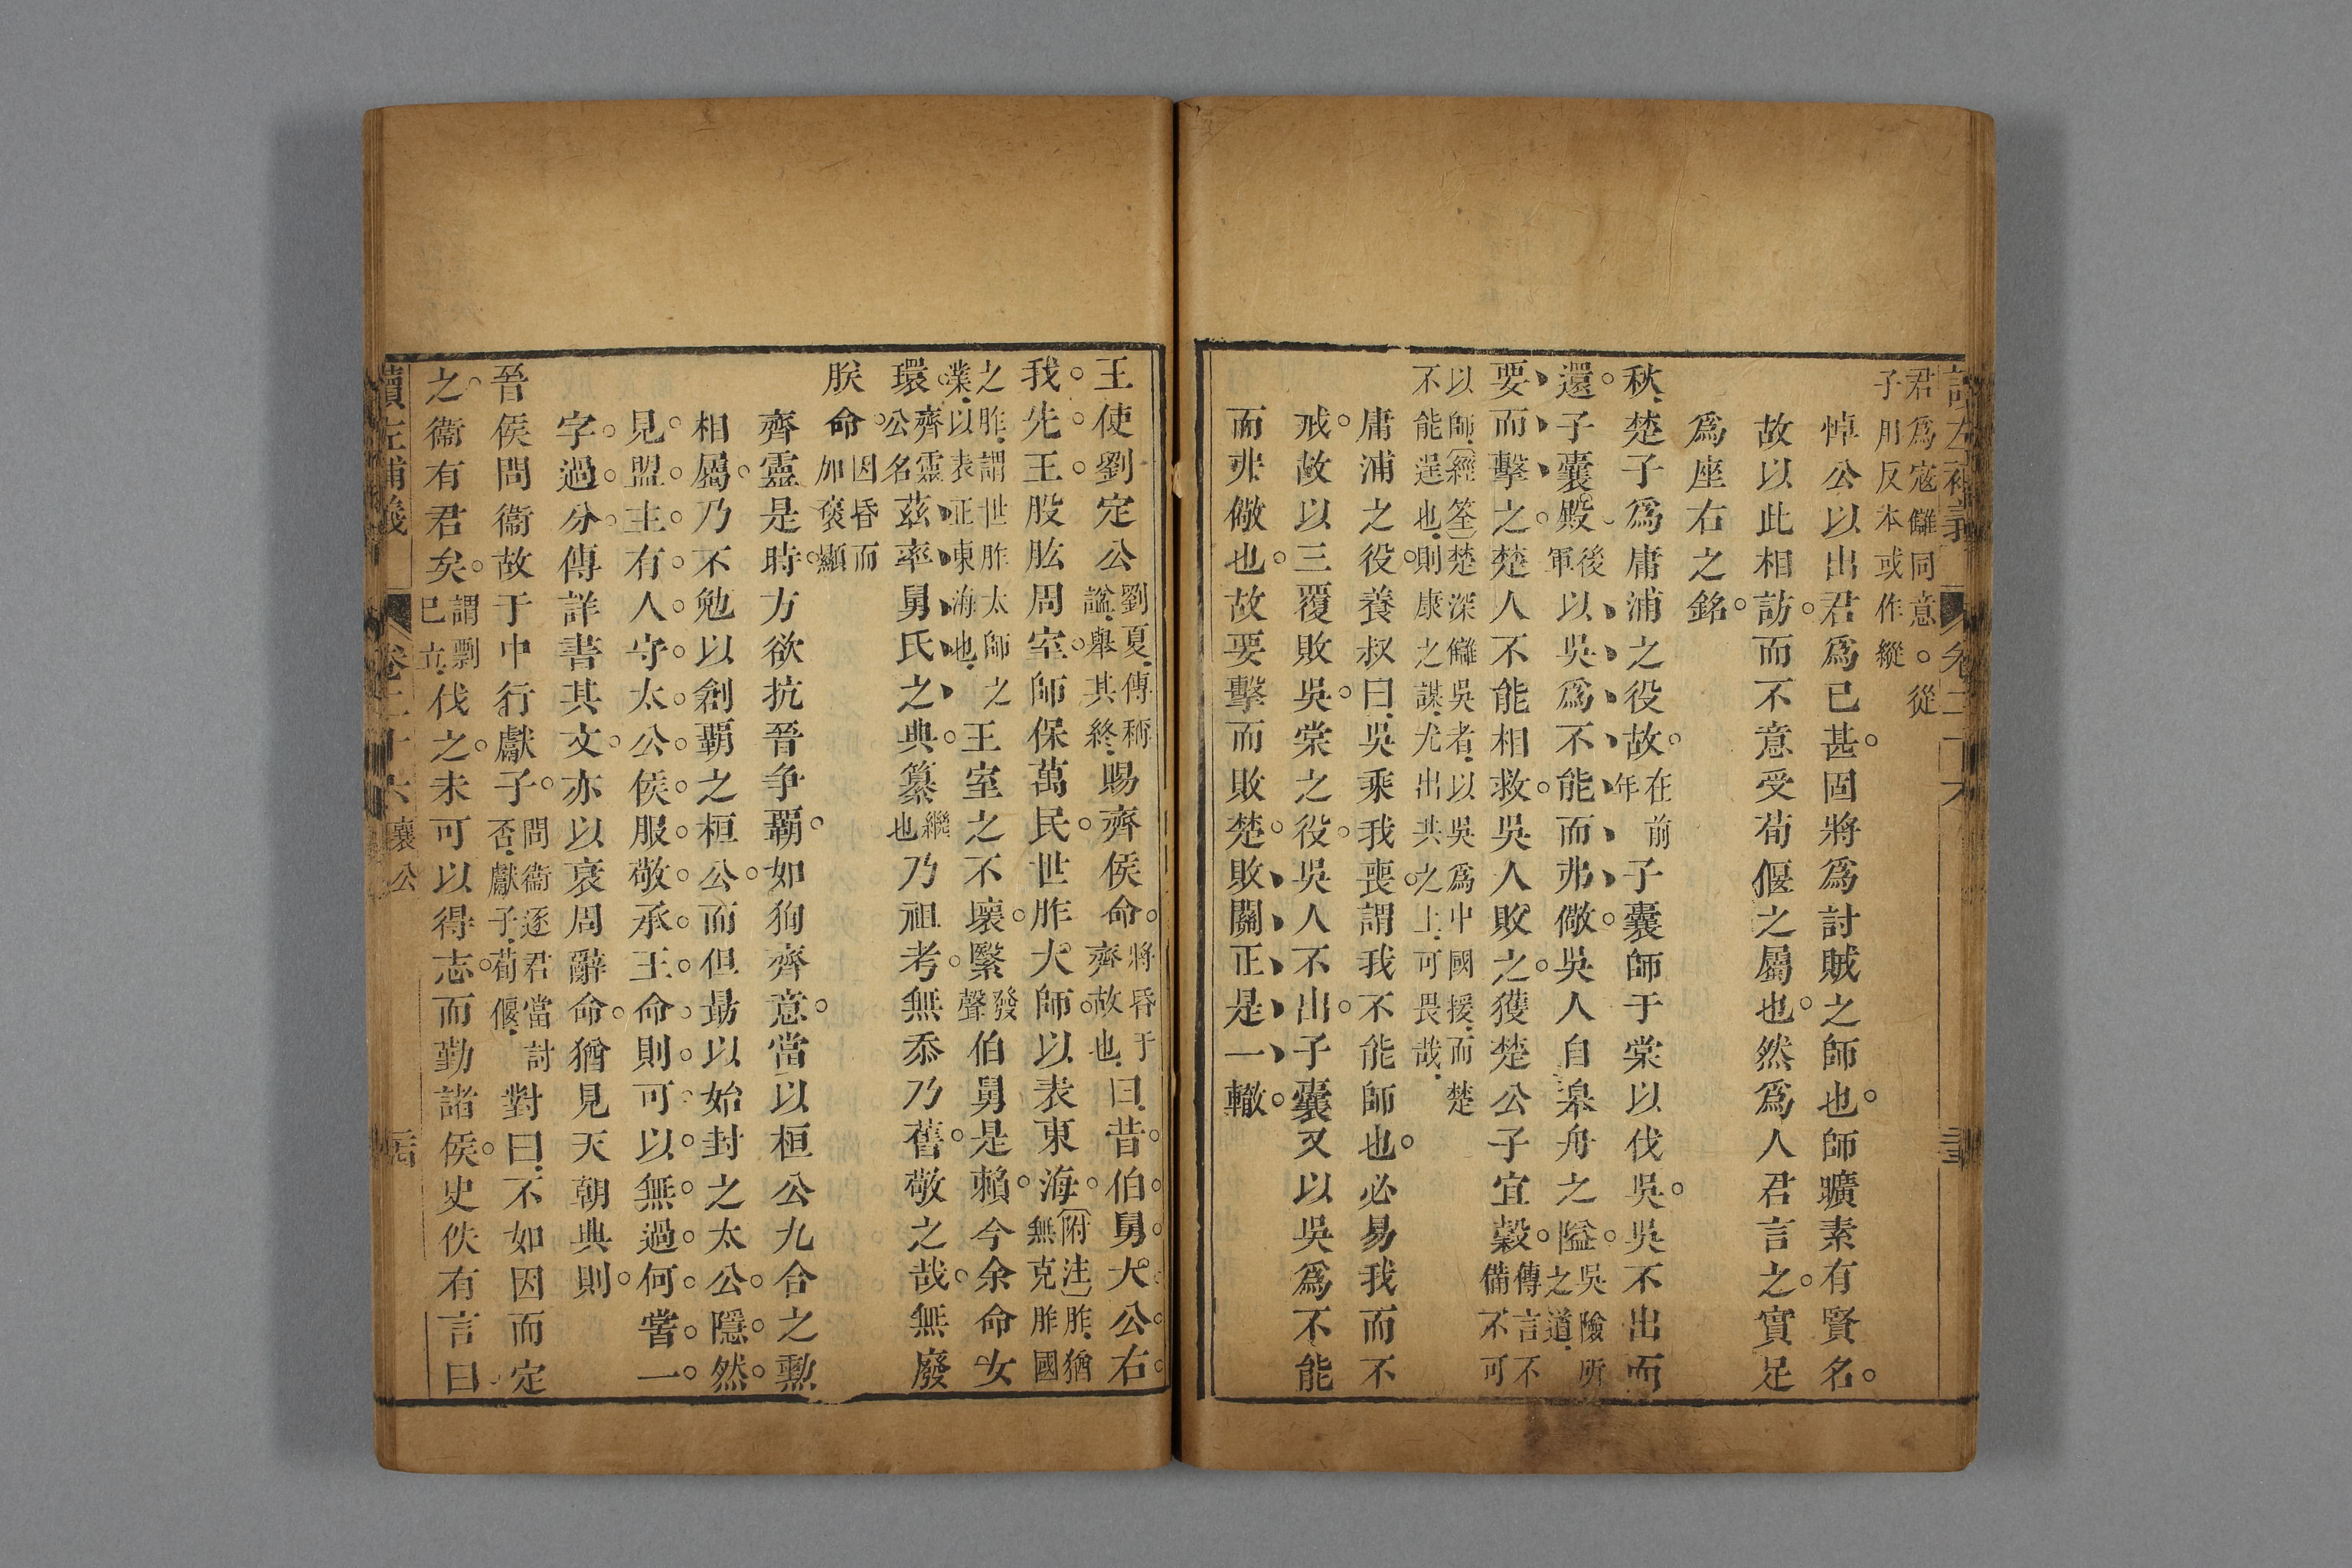 讀左補義 卷二十六
君爲寇讎同意。從
子用反本或作縱
悼公以出君爲已甚。固將爲討賊之師也。師曠素有賢名。
故以此相訪。而不意受荀偃之屬也。然爲人君言之。實足
爲座右之銘。
秋、楚子爲庸浦之役故。在前年子囊師于棠以伐吳。吳不出而
還。子囊殿後軍以吳爲不能而弗儆。吳人自皐舟之隘。吳險所之道、
要而擊之。楚人不能相救。吳人敗之。獲楚公子宜穀。傳言不備不可
以師、經筌楚深讎吳者、以吳爲中國援、而楚
不能逞也、則康之謀、尤出共之上、可畏哉、
庸浦之役。養叔曰、吳乘我喪。謂我不能師也。必易我而不
戒。故以三覆敗吳。棠之役。吳人不出。子囊又以吳爲不能
而弗儆也。故要擊而敗楚。敗關正是一轍。
王使劉定公劉夏、傳稱諡、舉其終、賜齊侯命。將昏于齊故也、曰、昔伯舅大公右
我。先王。股肱周室。師保萬民。世胙大師。以表東海。附注胙、猶無克胙國
之胙、謂世胙太師之
業、以表正東海也、王室之不壞。繄發聲伯舅是賴。今余命女
環。齊靈公名茲率舅氏之典。纂繼也乃祖考。無忝乃舊。敬之哉。無廢
朕命。因昏而加褒顯
齊靈是時。方欲抗晉争覇。如狥齊意。當以桓公九合之勲
相屬。乃不勉以創覇之桓公。而但勗以始封之太公。隱然
見盟主有人。守太公侯服。敬承王命。則可以無過。何嘗一
字過分。傳詳書其文。亦以哀周辭命。猶見天朝典則。
晉侯問衞故于中行獻子。問衞逐君當討否、獻子、荀偃、對曰、不如因而定
之。衞有君矣。謂剽已立、伐之。未可以得志。而勤諸侯。史佚有言曰
讀左補義 卷二十六 襄公